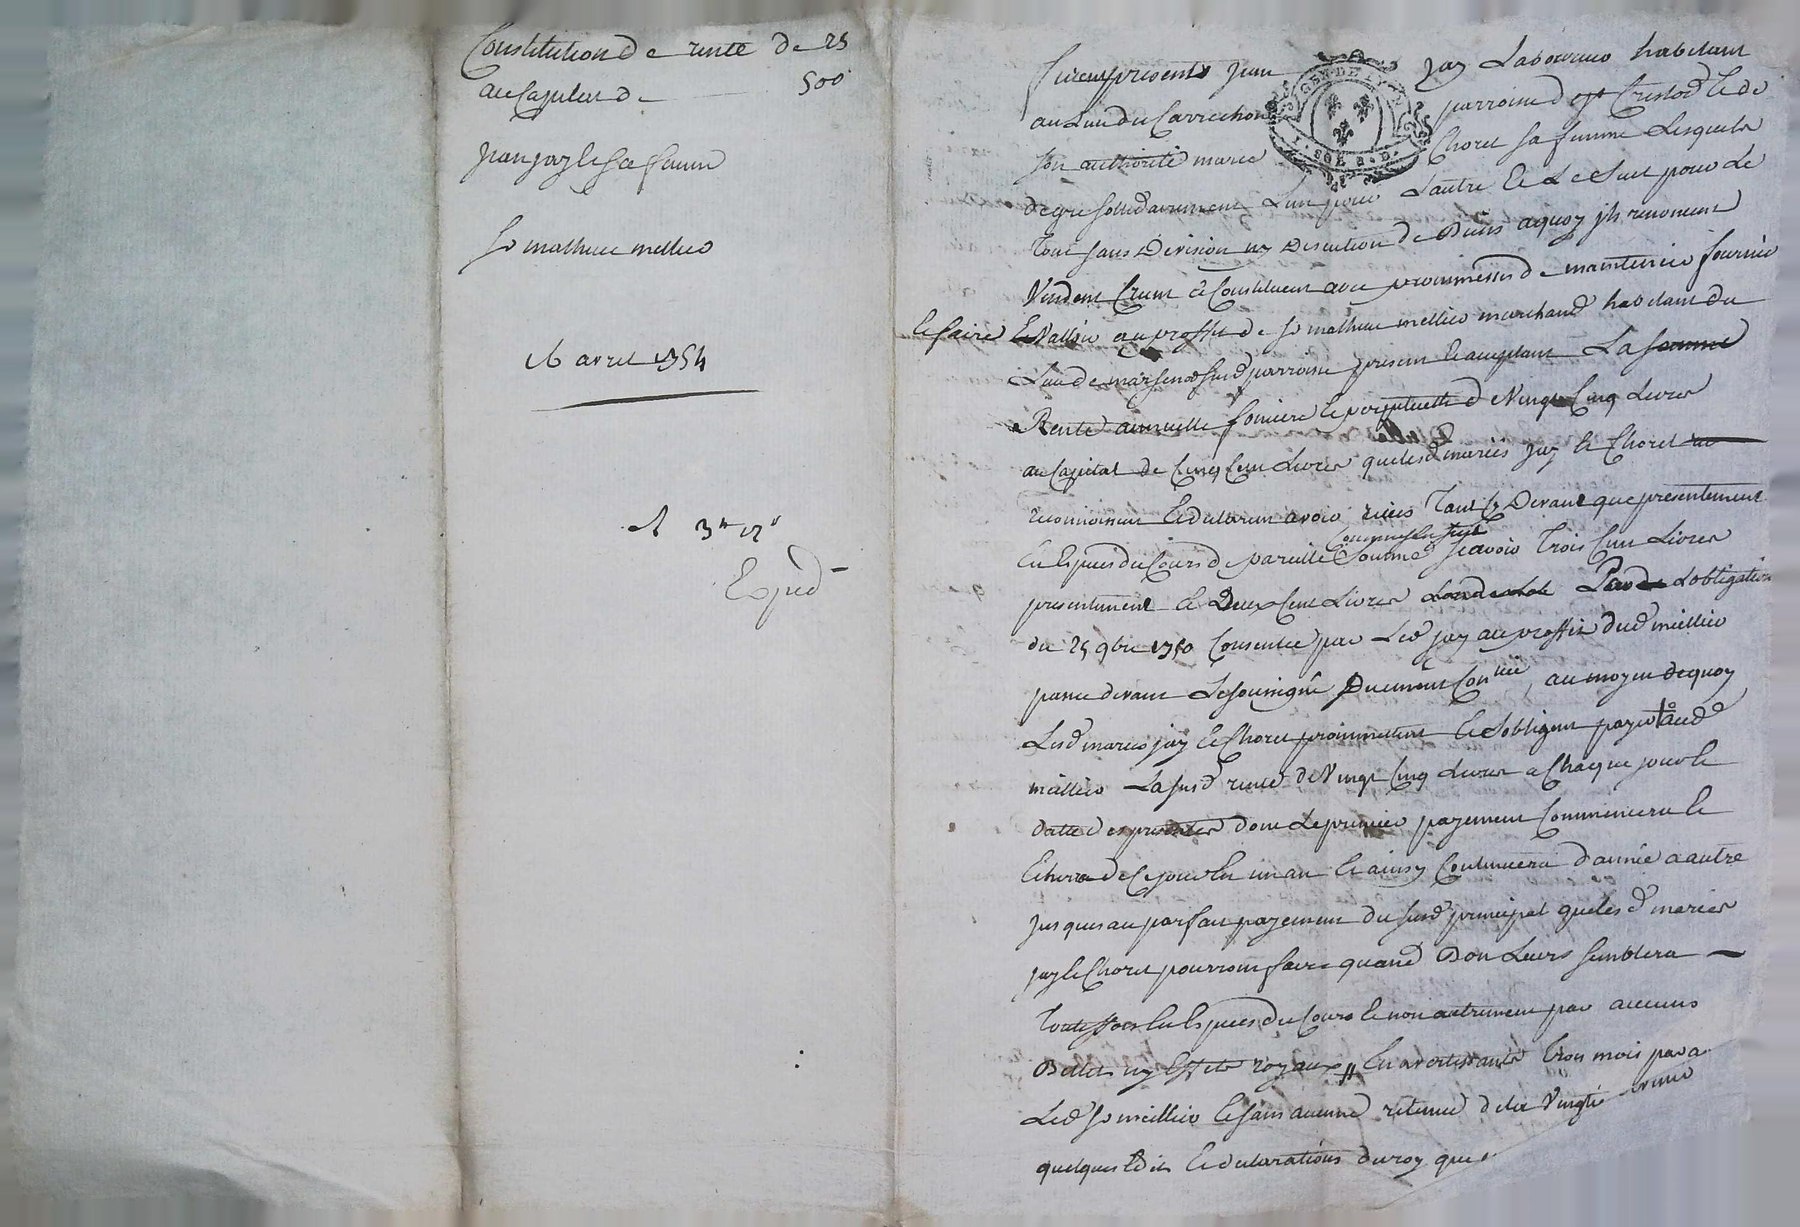 Constitution de rente de 25
au Capital de 500
jean jay et sa femme
Sr mathieu mellier
16 avril 1754
Exped
furent presents jean jay Laboureur habitant
au Lieu du parroisse d
son authorité mariée Choret sa femme Lesquels
de gre sollidairement L'un pour L'autre et Le Seul pour Le
Tout sans Division ny Discution de Biens a quoy ils renoncent
Vendent Creent et Constituent avec promesses de maintenir fournir
et faire et Valloir au proffit de Sr mathieu mellier marchand habitant du
Lieu de susd parroisse present et acceptant La somme
Rente annuelle fonciere et perpetuelle de Vingt Cinq Livres
au Capital de Cinq Cent Livres que lesd mariés jay et Choret
reconnoissent et declarent avoir receus Tant Cy Devant que presentement
En Especes du Cours de pareille Somme Scavoir Trois Cent Livres
presentement et Deux Cent Livres Par L'obligation
du 25 9bre 1750 Consentie par Led jay au proffit dud mellier
passée devant Le soussigné Duement Connée, au moyen de quoy
Lesd mariés jay et Choret promettent et S'obligent payer aud
mellier La susd rente de Vingt Cinq Livres a Chaque jour et
datte des presentes dont Le premier payement Commencera et
Echerra de Ce jour En un an et ainsy Continuera d'année a autre
jusques au parfait payement du susd principal que les d mariés
jay et Choret pourront faire quand Bon Leurs Semblera
Touteffois En Especes du Cours et non autrement par aucuns
Billets ny Effets royaux En avertissant Trois mois par avance
Led Sr mellier et sans aucune retenue de
quelques Edits et declarations du roy que